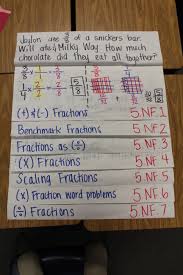 Jaylon ate 3/8 of a snickers bar.
Will ate 1/4 Milky Way. How much
chocolate did they eat all together?
3/8 × 1/1 = 3/8
1/4 × 2/2 = 2/8
5/8
(+) & (-) Fractions 5.NF.1
Benchmark Fractions 5.NF.2
Fractions as (÷) 5.NF.3
(x) Fractions 5.NF.4
Scaling Fractions 5.NF.5
(x) Fraction word problems 5.NF.6
(÷) Fractions 5.NF.7